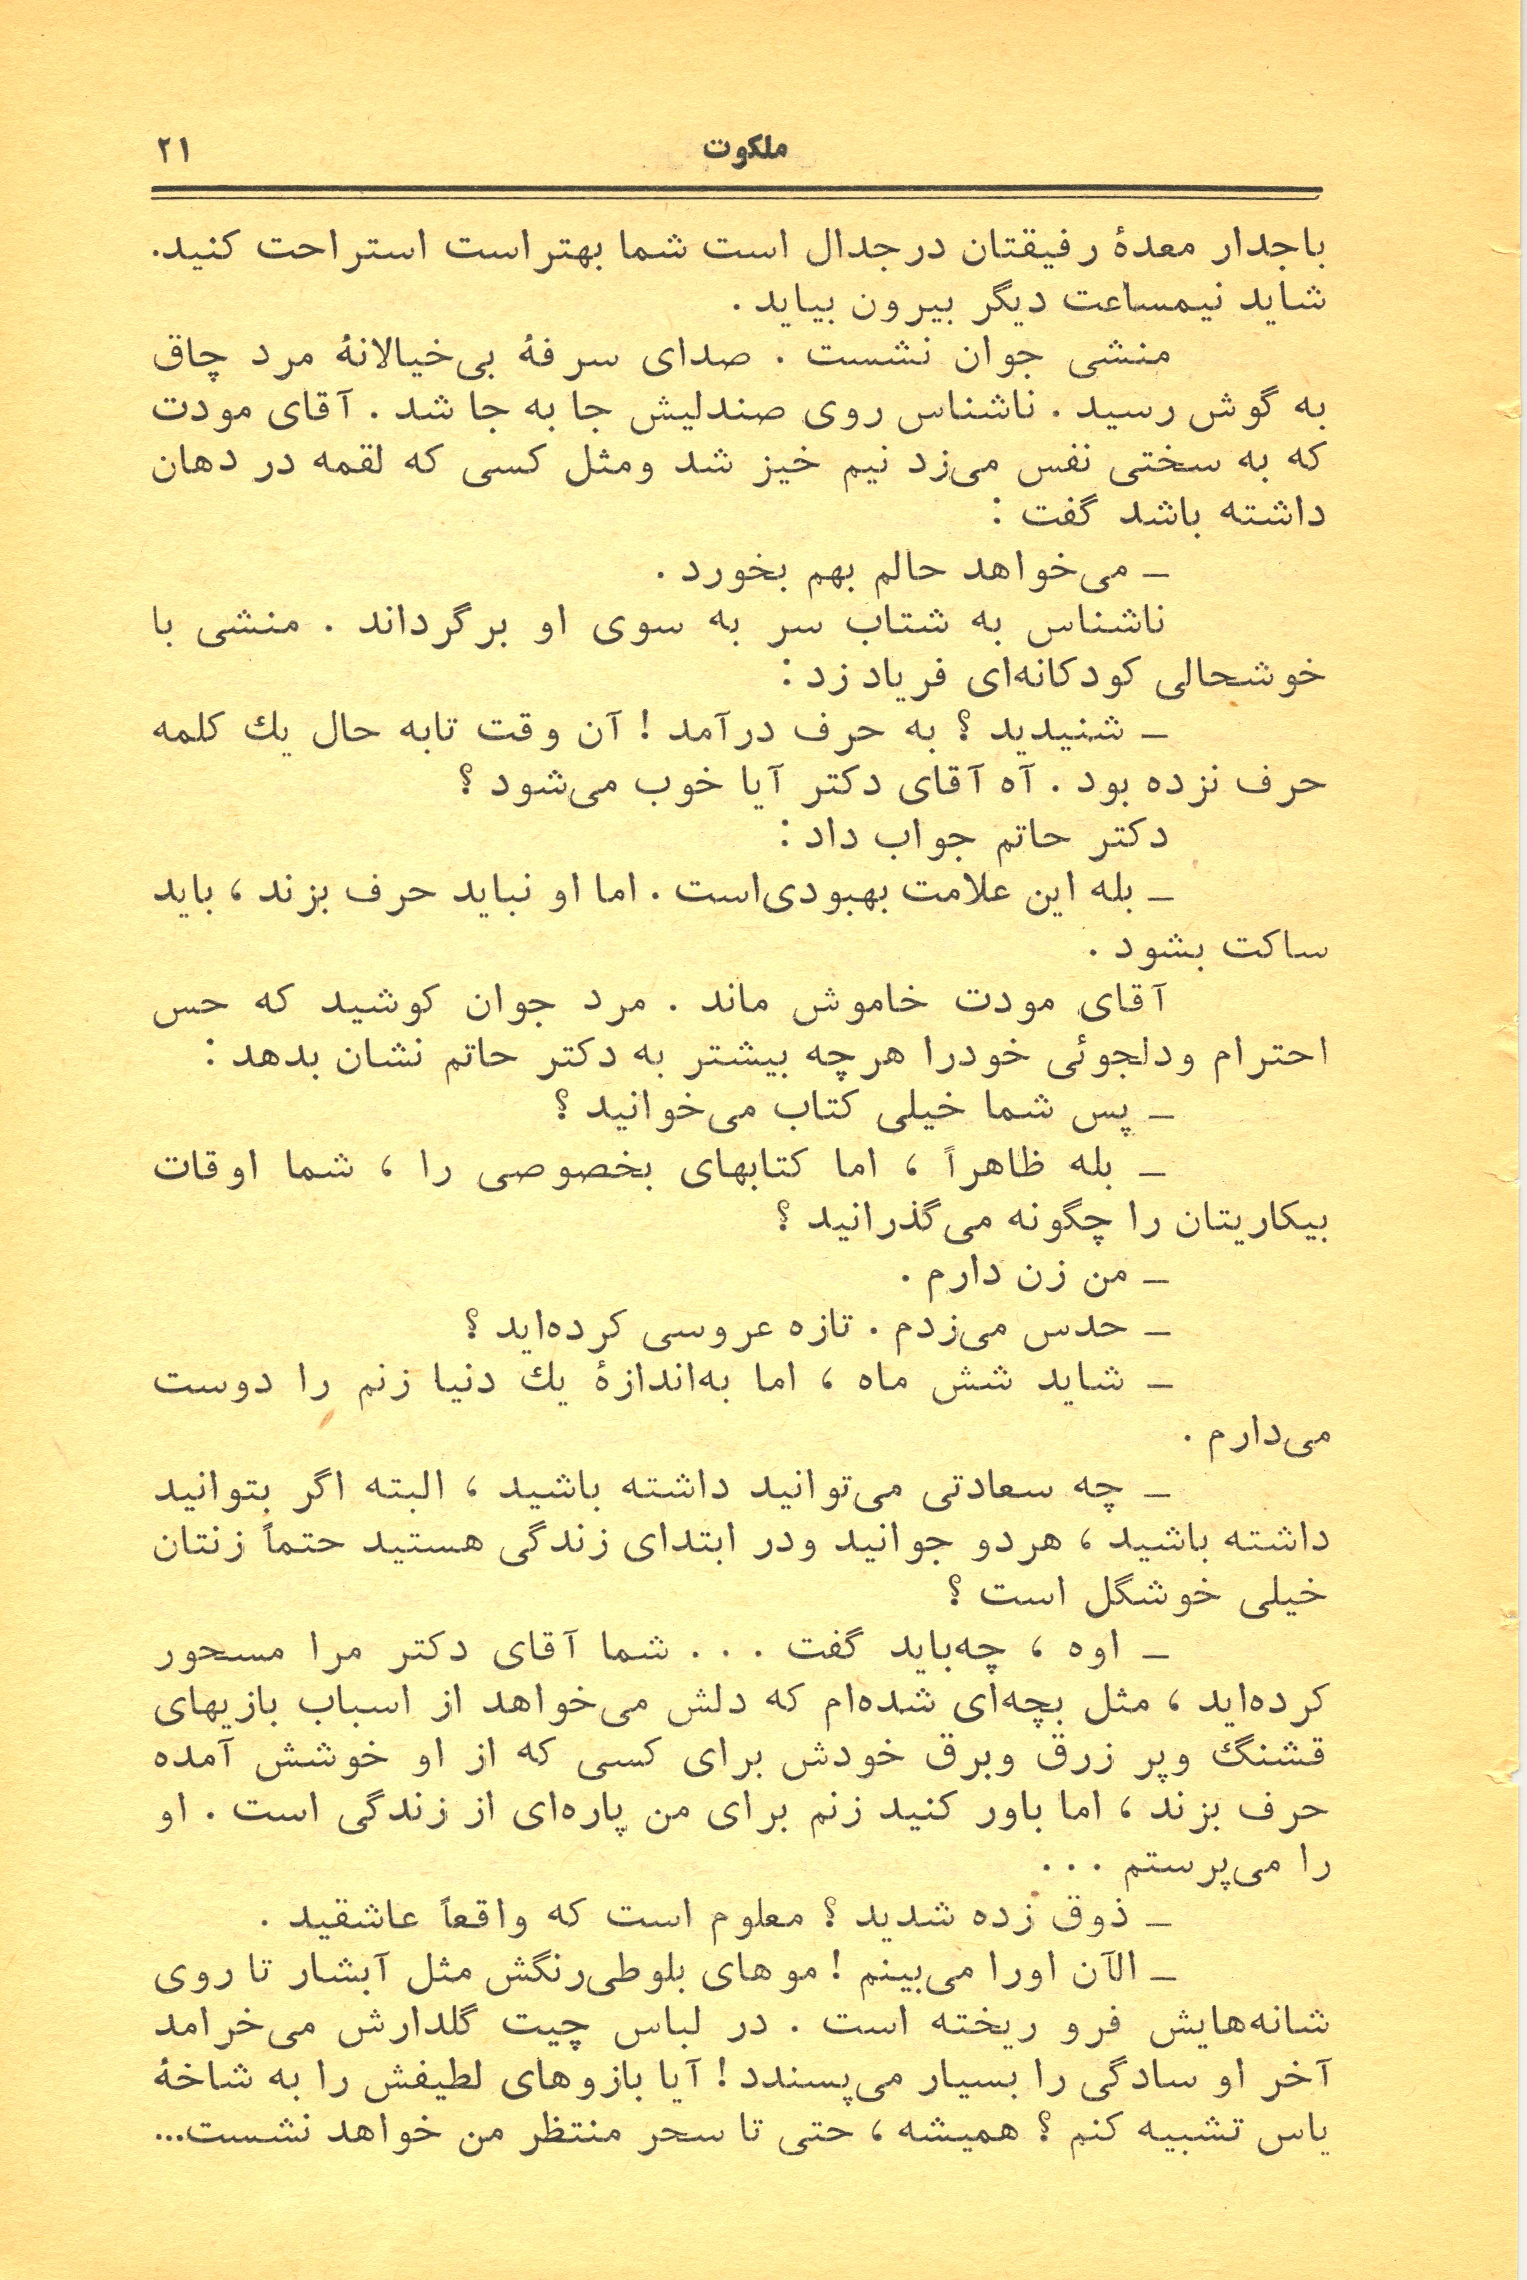 ملکوت ۲۱
باجدار معدهٔ رفیقتان درجدال است شما بهتراست استراحت کنید.
شاید نیمساعت دیگر بیرون بیاید .
منشی جوان نشست . صدای سرفهٔ بی‌خیالانهٔ مرد چاق
به گوش رسید . ناشناس روی صندلیش جا به جا شد . آقای مودت
که به سختی نفس می‌زد نیم خیز شد ومثل کسی که لقمه در دهان
داشته باشد گفت :
ـ می‌خواهد حالم بهم بخورد .
ناشناس به شتاب سر به سوی او برگرداند . منشی با
خوشحالی کودکانه‌ای فریاد زد :
ـ شنیدید ؟ به حرف درآمد ! آن وقت تابه حال یك کلمه
حرف نزده بود . آه آقای دکتر آیا خوب می‌شود ؟
دکتر حاتم جواب داد :
ـ بله این علامت بهبودی‌است . اما او نباید حرف بزند ، باید
ساکت بشود .
آقای مودت خاموش ماند . مرد جوان کوشید که حس
احترام ودلجوئی خودرا هرچه بیشتر به دکتر حاتم نشان بدهد :
ـ پس شما خیلی کتاب می‌خوانید ؟
ـ بله ظاهراً ، اما کتابهای بخصوصی را ، شما اوقات
بیکاریتان را چگونه می‌گذرانید ؟
ـ من زن دارم .
ـ حدس می‌زدم . تازه عروسی کرده‌اید ؟
ـ شاید شش ماه ، اما به‌اندازهٔ یك دنیا زنم را دوست
می‌دارم .
ـ چه سعادتی می‌توانید داشته باشید ، البته اگر بتوانید
داشته باشید ، هردو جوانید ودر ابتدای زندگی هستید حتماً زنتان
خیلی خوشگل است ؟
ـ اوه ، چه‌باید گفت . . . شما آقای دکتر مرا مسحور
کرده‌اید ، مثل بچه‌ای شده‌ام که دلش می‌خواهد از اسباب بازیهای
قشنگ وپر زرق وبرق خودش برای کسی که از او خوشش آمده
حرف بزند ، اما باور کنید زنم برای من پاره‌ای از زندگی است . او
را می‌پرستم . . .
ـ ذوق زده شدید ؟ معلوم است که واقعاً عاشقید .
ـ الآن اورا می‌بینم ! موهای بلوطی‌رنگش مثل آبشار تا روی
شانه‌هایش فرو ریخته است . در لباس چیت گلدارش می‌خرامد
آخر او سادگی را بسیار می‌پسندد ! آیا بازوهای لطیفش را به شاخهٔ
یاس تشبیه کنم ؟ همیشه ، حتی تا سحر منتظر من خواهد نشست...